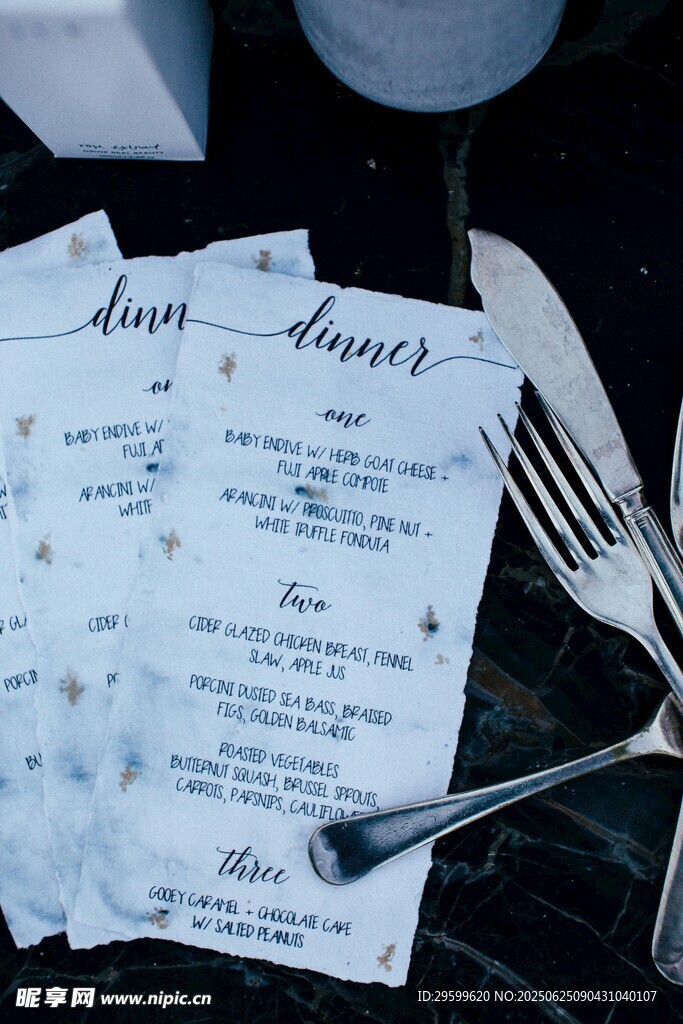 rose extrait
dinner
one
BABY ENDIVE W/ HERB GOAT CHEESE +
FUJI APPLE COMPOTE
ARANCINI W/ PROSCUITTO, PINE NUT +
WHITE TRUFFLE FONDUTA
two
CIDER GLAZED CHICKEN BREAST, FENNEL
SLAW, APPLE JUS
PORCINI DUSTED SEA BASS, BRAISED
FIGS, GOLDEN BALSAMIC
ROASTED VEGETABLES
BUTTERNUT SQUASH, BRUSSEL SPROUTS,
CARROTS, PARSNIPS,
three
GOOEY CARAMEL + CHOCOLATE CAKE
W/ SALTED PEANUTS
dinn
BABY ENDIVE W/
FUJI
ARANCINI W/
WHITE
CIDER
昵享网 www.nipic.cn
ID:29599620 NO:20250625090431040107